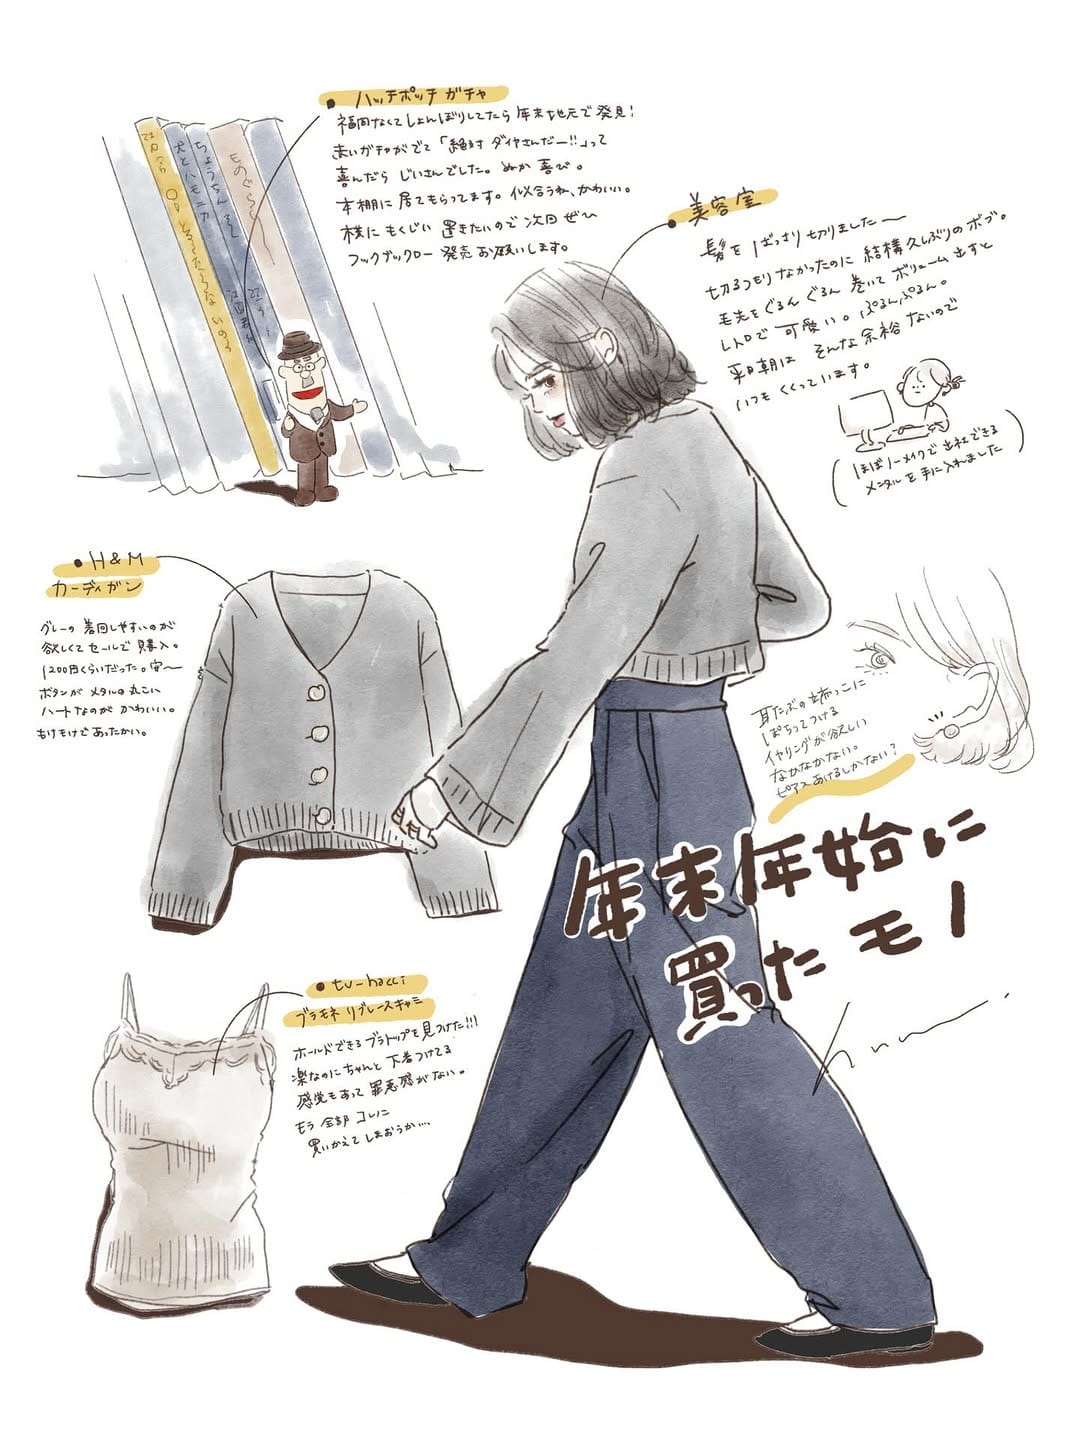 ハッチポッチガチャ
福岡なくてしょんぼりしてたら年末地元で発見!
赤いガチャがでて「絶対ダイヤさんだー!!」って
喜んだらじいさんでした。ぬか喜び。
本棚に居てもらってます。似合うね、かわいい。
横にもくじい置きたいので次回ぜ〜
フックブックロー発売お願いします。
美容室
髪をばっさり切りました〜
切るつもりなかったのに結構久しぶりのボブ。
毛先をぐるんぐるん巻いてボリューム出すと
レトロで可愛い。ぷるんぷるん。
平日朝はそんな余裕ないので
いつもくくっています。
(ほぼノーメイクで出社できる
メンタルを手に入れました)
ちょうちんそで
ものぐらし
犬とハモニカ
江國香織
H&M
カーディガン
グレーの着回しやすいのが
欲しくてセールで購入。
1200円くらいだった。安〜
ボタンがメタルの丸こい
ハートなのがかわいい。
もけもけであったかい。
耳たぶの端っこに
ぱちってつける
イヤリングが欲しい
なかなかない。
ピアスあけるしかない?
年末年始に
買ったモノ
tu-hacci
ブラモネリブレースキャミ
ホールドできるブラトップを見つけた!!!
楽なのにちゃんと下着つけてる
感覚もあって罪悪感がない。
もう全部コレに
買いかえてしまおうか…